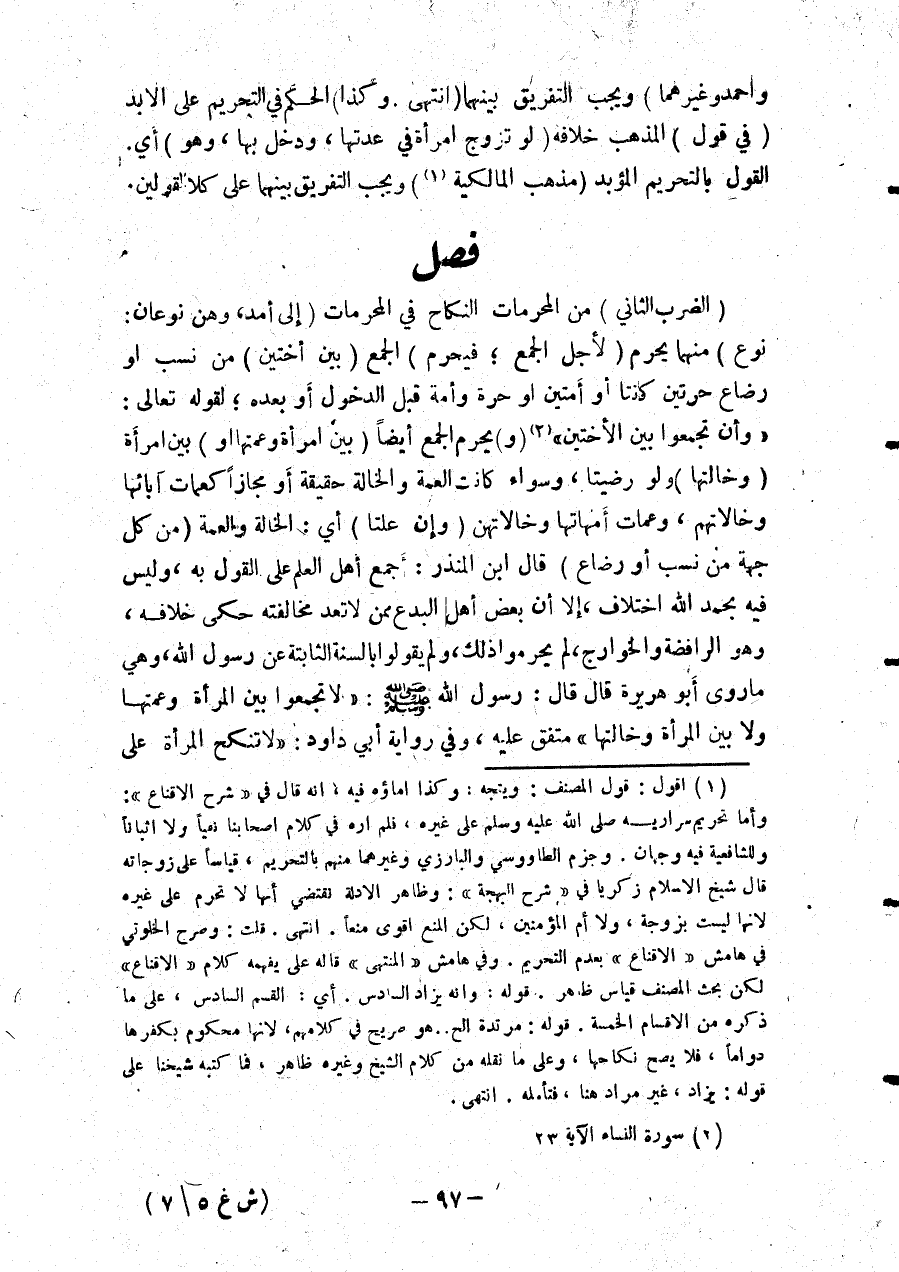 وأحمدوغيرهما ) ويجب التفريق بينهما(انتهى . وكذا)الحكم في التحريم على الابد
( في قول ) المذهب خلافه( لو تزوج امرأة في عدتها ، ودخل بها ، وهو ) أي .
القول بالتحريم المؤبد (مذهب المالكية (١) ) ويجب التفريق بينهما على كلا القولين.
فصل
( الضرب الثاني ) من المحرمات النكاح في المحرمات ( إلى أمد، وهن نوعان:
نوع ) منهما يحرم ( لأجل الجمع ؛ فيحرم ) الجمع ( بين أختين ) من نسب او
رضاع حرتين كانتا أو أمتين او حرة وأمة قبل الدخول أو بعده ؛ لقوله تعالى :
« وأن تجمعوا بين الأختين»(٢) (و)يحرم الجمع أيضاً ( بين امرأة وعمتها او ) بين امرأة
( وخالتها )ولو رضيتا ، وسواء كانت العمة والخالة حقيقة أو مجازاً كعمات آبائها
وخالاتهم ، وعمات أمهاتها وخالاتهن ( وإن علتا ) أي : الخالة والعمة (من كل
جهة من نسب أو رضاع ) قال ابن المنذر : أجمع أهل العلم على القول به ، وليس
فيه بحمد الله اختلاف ، إلا أن بعض أهل البدع ممن لاتعد مخالفته حكى خلافه ،
وهو الرافضة والخوارج، لم يحرموا ذلك، ولم يقولوا بالسنة الثابتة عن رسول الله، وهي
ماروى أبو هريرة قال قال : رسول الله ﷺ : « لاتجمعوا بين المرأة وعمتها
ولا بين المرأة وخالتها » متفق عليه ، وفي رواية أبي داود : «لاتنكح المرأة على
(١) اقول : قول المصنف : ويتجه : وكذا اماؤه فيه ؛ انه قال في « شرح الاقناع »:
وأما تحريم سراريه صلى الله عليه وسلم على غيره ، فلم اره في كلام اصحابنا نفياً ولا اثباتاً
وللشافعية فيه وجهان . وجزم الطاووسي والبارزي وغيرهما منهم بالتحريم ، قياساً على زوجاته
قال شيخ الاسلام زكريا في « شرح البهجة » : وظاهر الادلة تقتضي أنها لا تحرم على غيره
لانها ليست بزوجة ، ولا أم المؤمنين ، لكن المنع اقوى منعاً . انتهى . قلت : وصرح الخلوتي
في هامش « الاقناع » بعدم التحريم . وفي هامش « المنتهى » قاله على يفهمه كلام « الاقناع»
لكن بحث المصنف قياس ظاهر . قوله : وانه يزاد السادس . أي : القسم السادس ، على ما
ذكره من الاقسام الخمسة . قوله : مرتدة الخ..هو صريح في كلامهم، لانها محكوم بكفرها
دواماً ، فلا يصح نكاحها ، وعلى ما نقله من كلام الشيخ وغيره ظاهر ، فما كتبه شيخنا على
قوله : يزاد ، غير مراد هنا ، فتأمله . انتهى .
(٢) سورة النساء الآية ٢٣
- ٩٧ -
(ش غ ٥ / ٧)